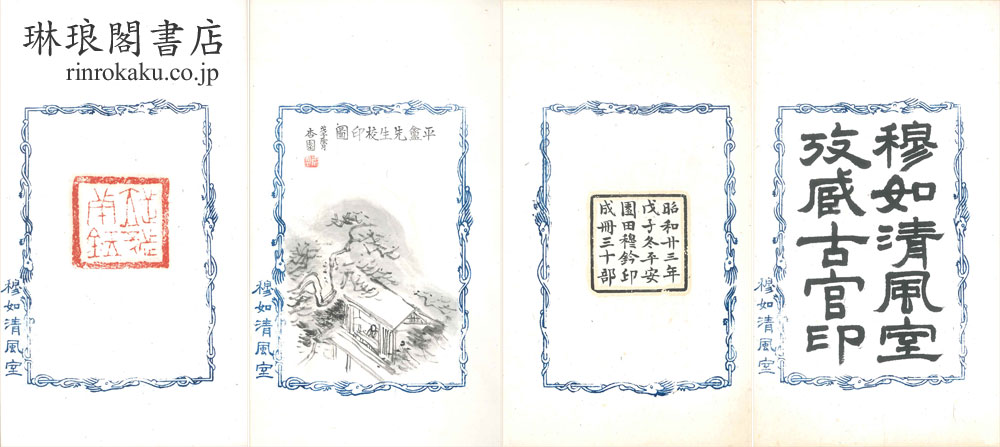 琳琅閣書店
rinrokaku.co.jp
穆如清風室
攷臧古官印
穆如清風室
昭和廿三年
戊子冬平安
園田穆鈐印
成冊三十部
平盦先生校印圖
杏園
穆如清風室
穆如清風室